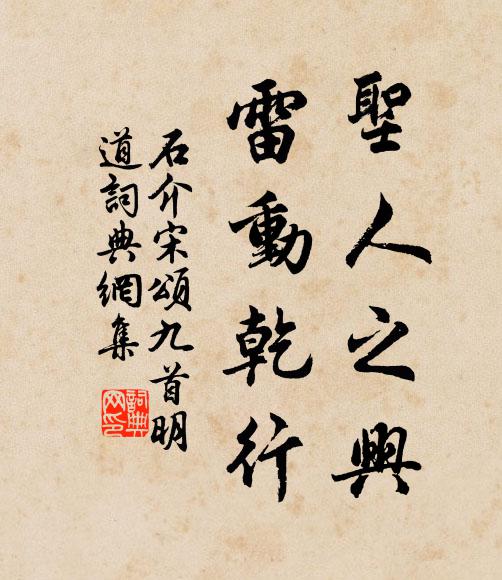 聖人之興
雷動乾行
石介宋頌九首明
道詞典網集
詞典網印